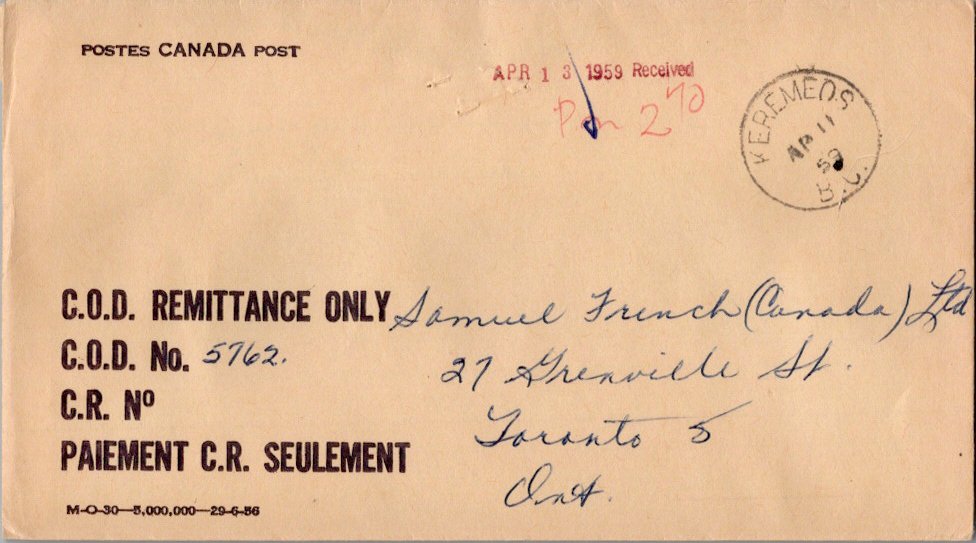 POSTES CANADA POST
APR 13 1959 Received
2 70
KEREMEOS
AP 11
59
B.C.
C.O.D. REMITTANCE ONLY
Samuel French (Canada) Ltd
C.O.D. No. 5762.
27 Grenville St.
C.R. Nº
Toronto 5
PAIEMENT C.R. SEULEMENT
Ont.
M-O-30—5,000,000—29-6-56